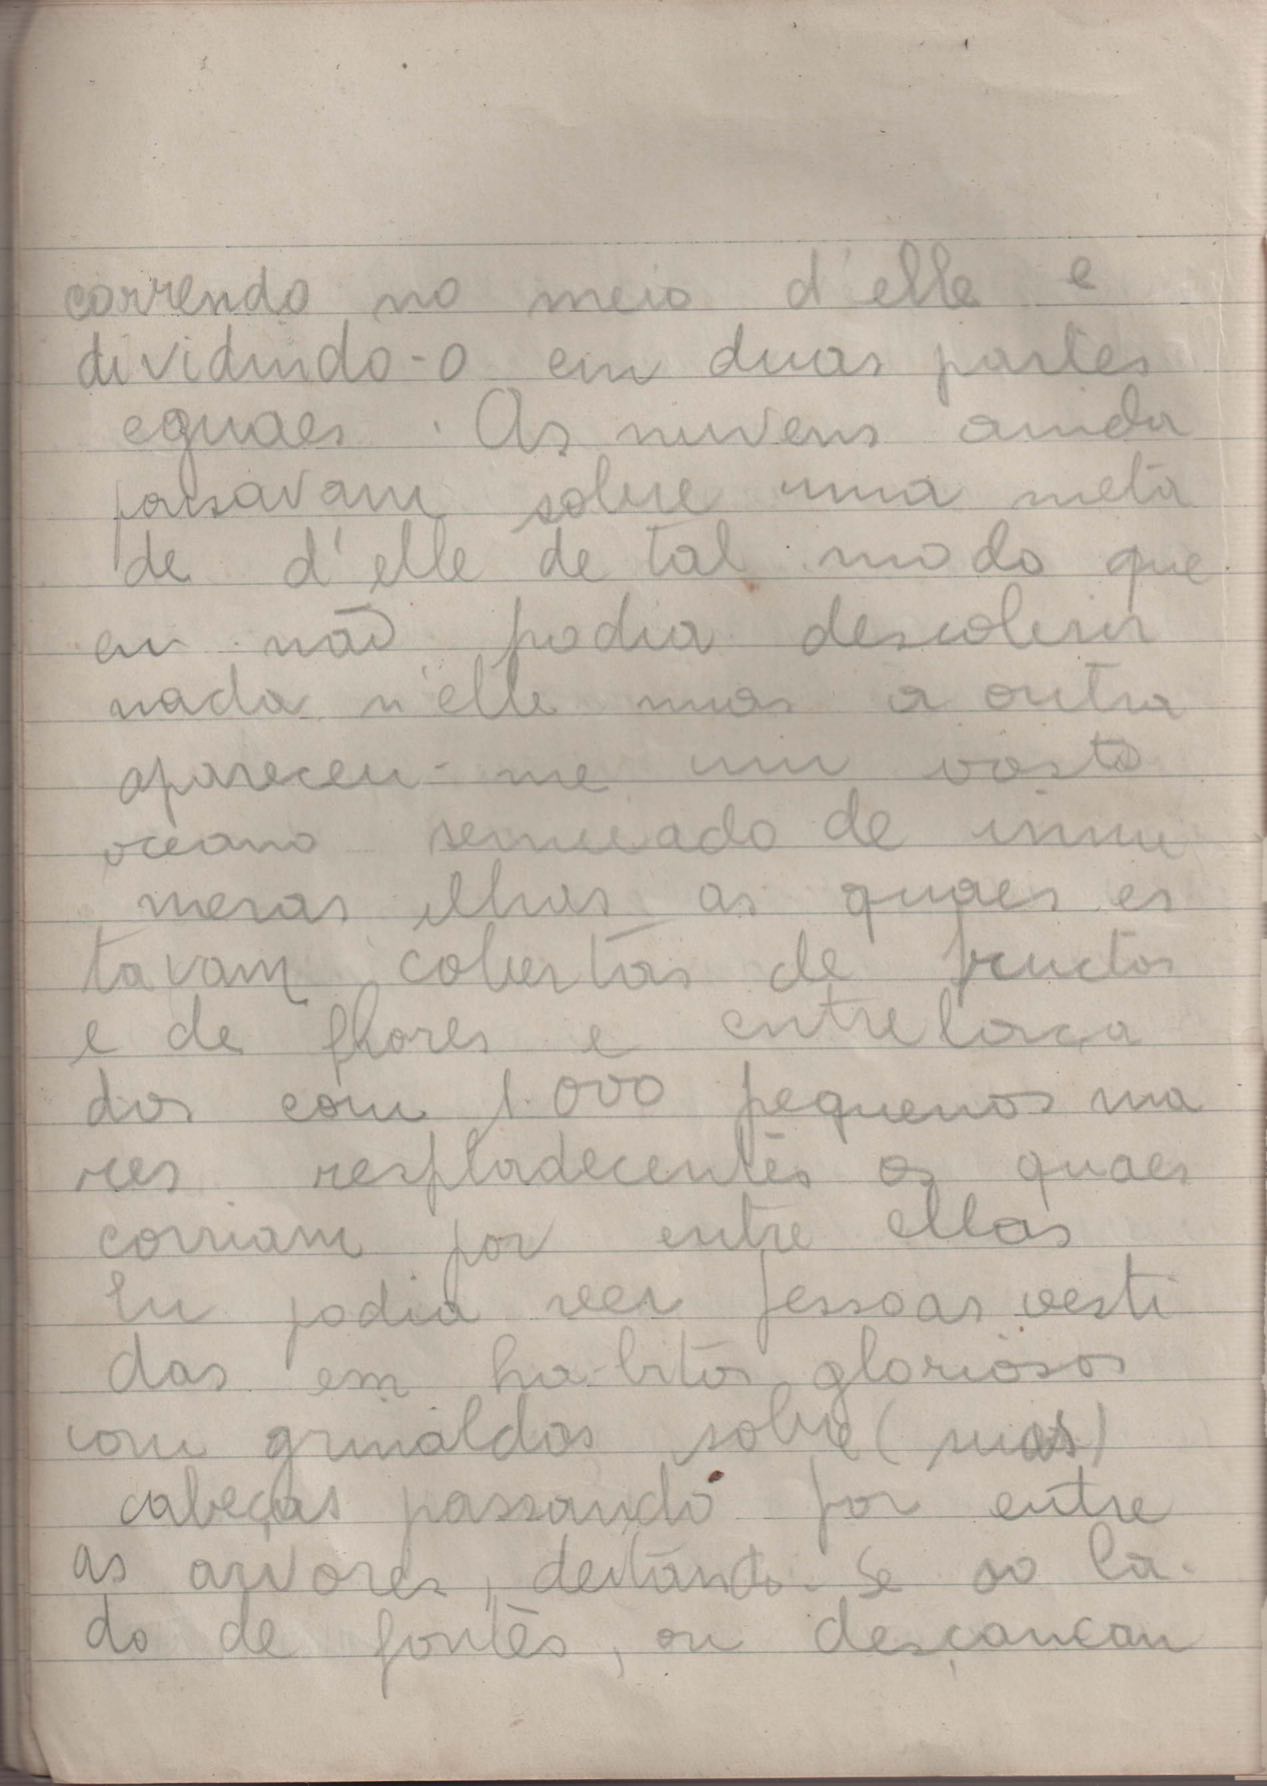 correndo no meio d'elle e
dividindo-o em duas partes
eguaes. As nuvens ainda
passavam sobre uma meta
de d'elle de tal modo que
eu não podia descobrir
nada n'elle mas a outra
apareceu-me um vasto
oceano semeado de innu
meras ilhas as quaes es
tavam cobertas de fructos
e de flores e entrelaça
dos com 1.000 pequenos ma
res respladecentes os quaes
corriam por entre ellas
Eu podia ver pessoas vesti
das em ha-bitos gloriosos
com grinaldas sobre (suas)
cabeças passando por entre
as arvores, deitando-se ao la-
do de fontes, ou descançan